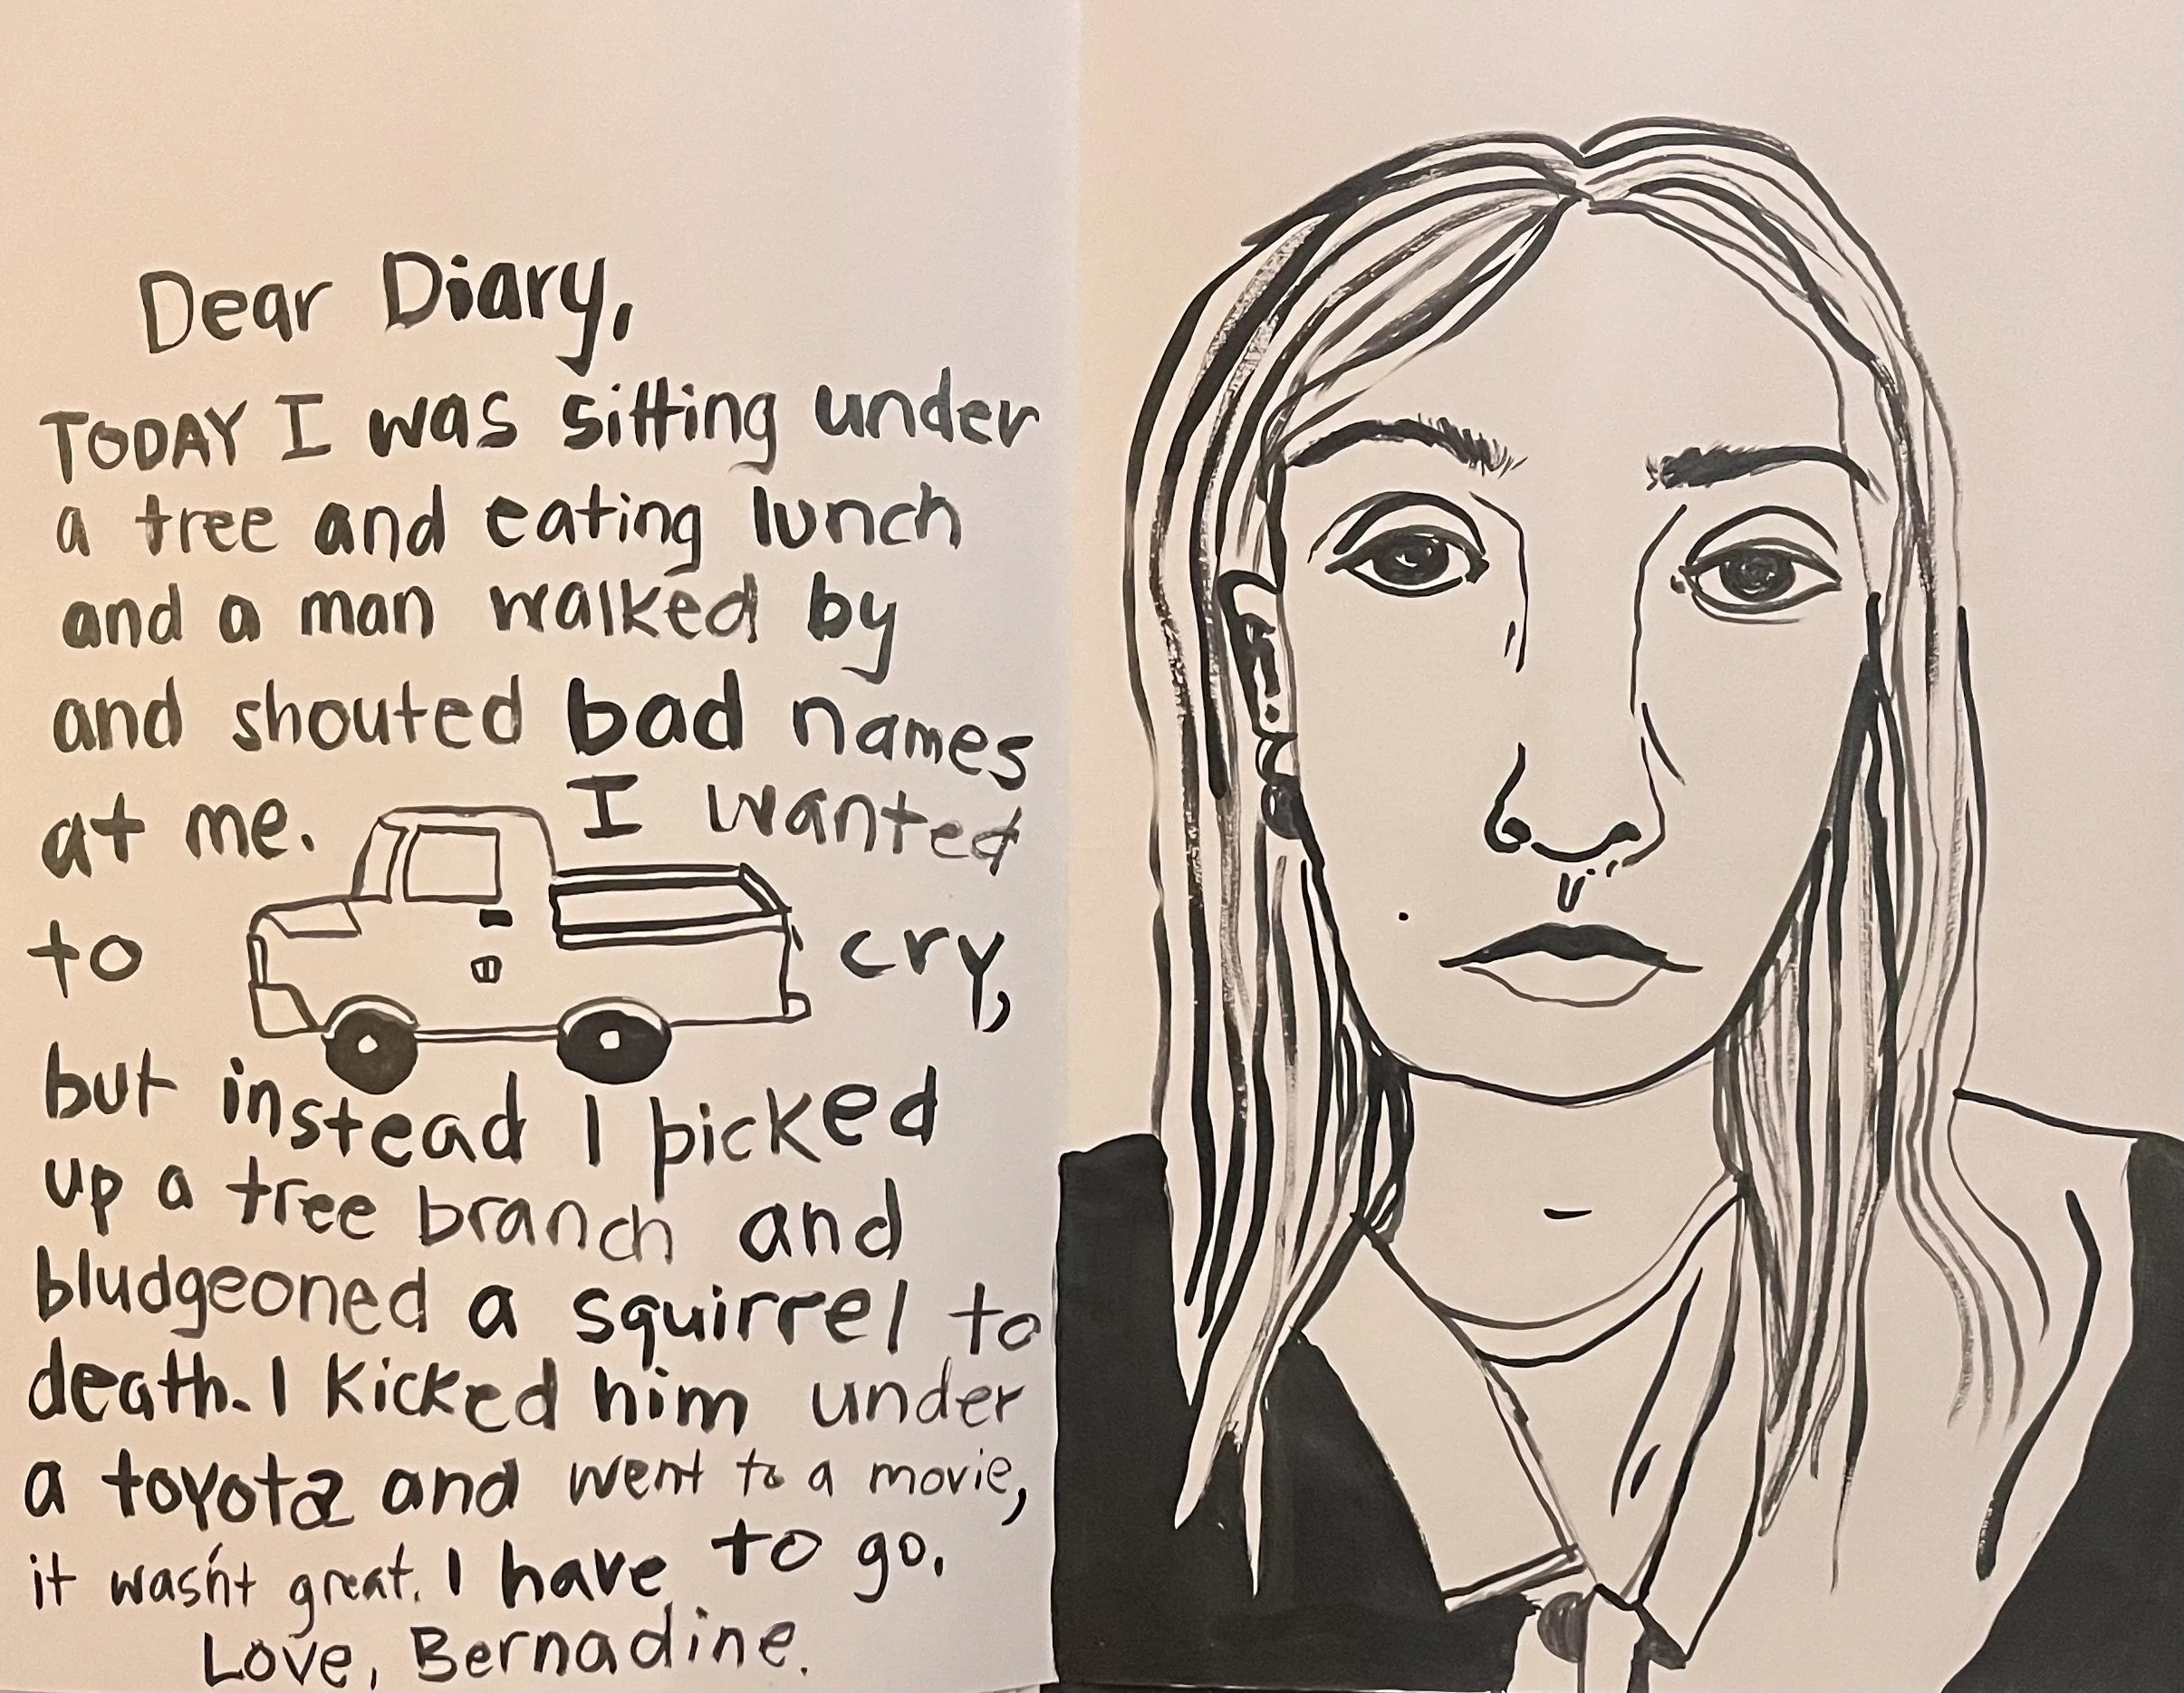 Dear Diary,
TODAY I was sitting under
a tree and eating lunch
and a man walked by
and shouted bad names
at me. I wanted
to cry,
but instead I picked
up a tree branch and
bludgeoned a squirrel to
death. I kicked him under
a toyota and went to a movie,
it wasn't great. I have to go.
Love, Bernadine.